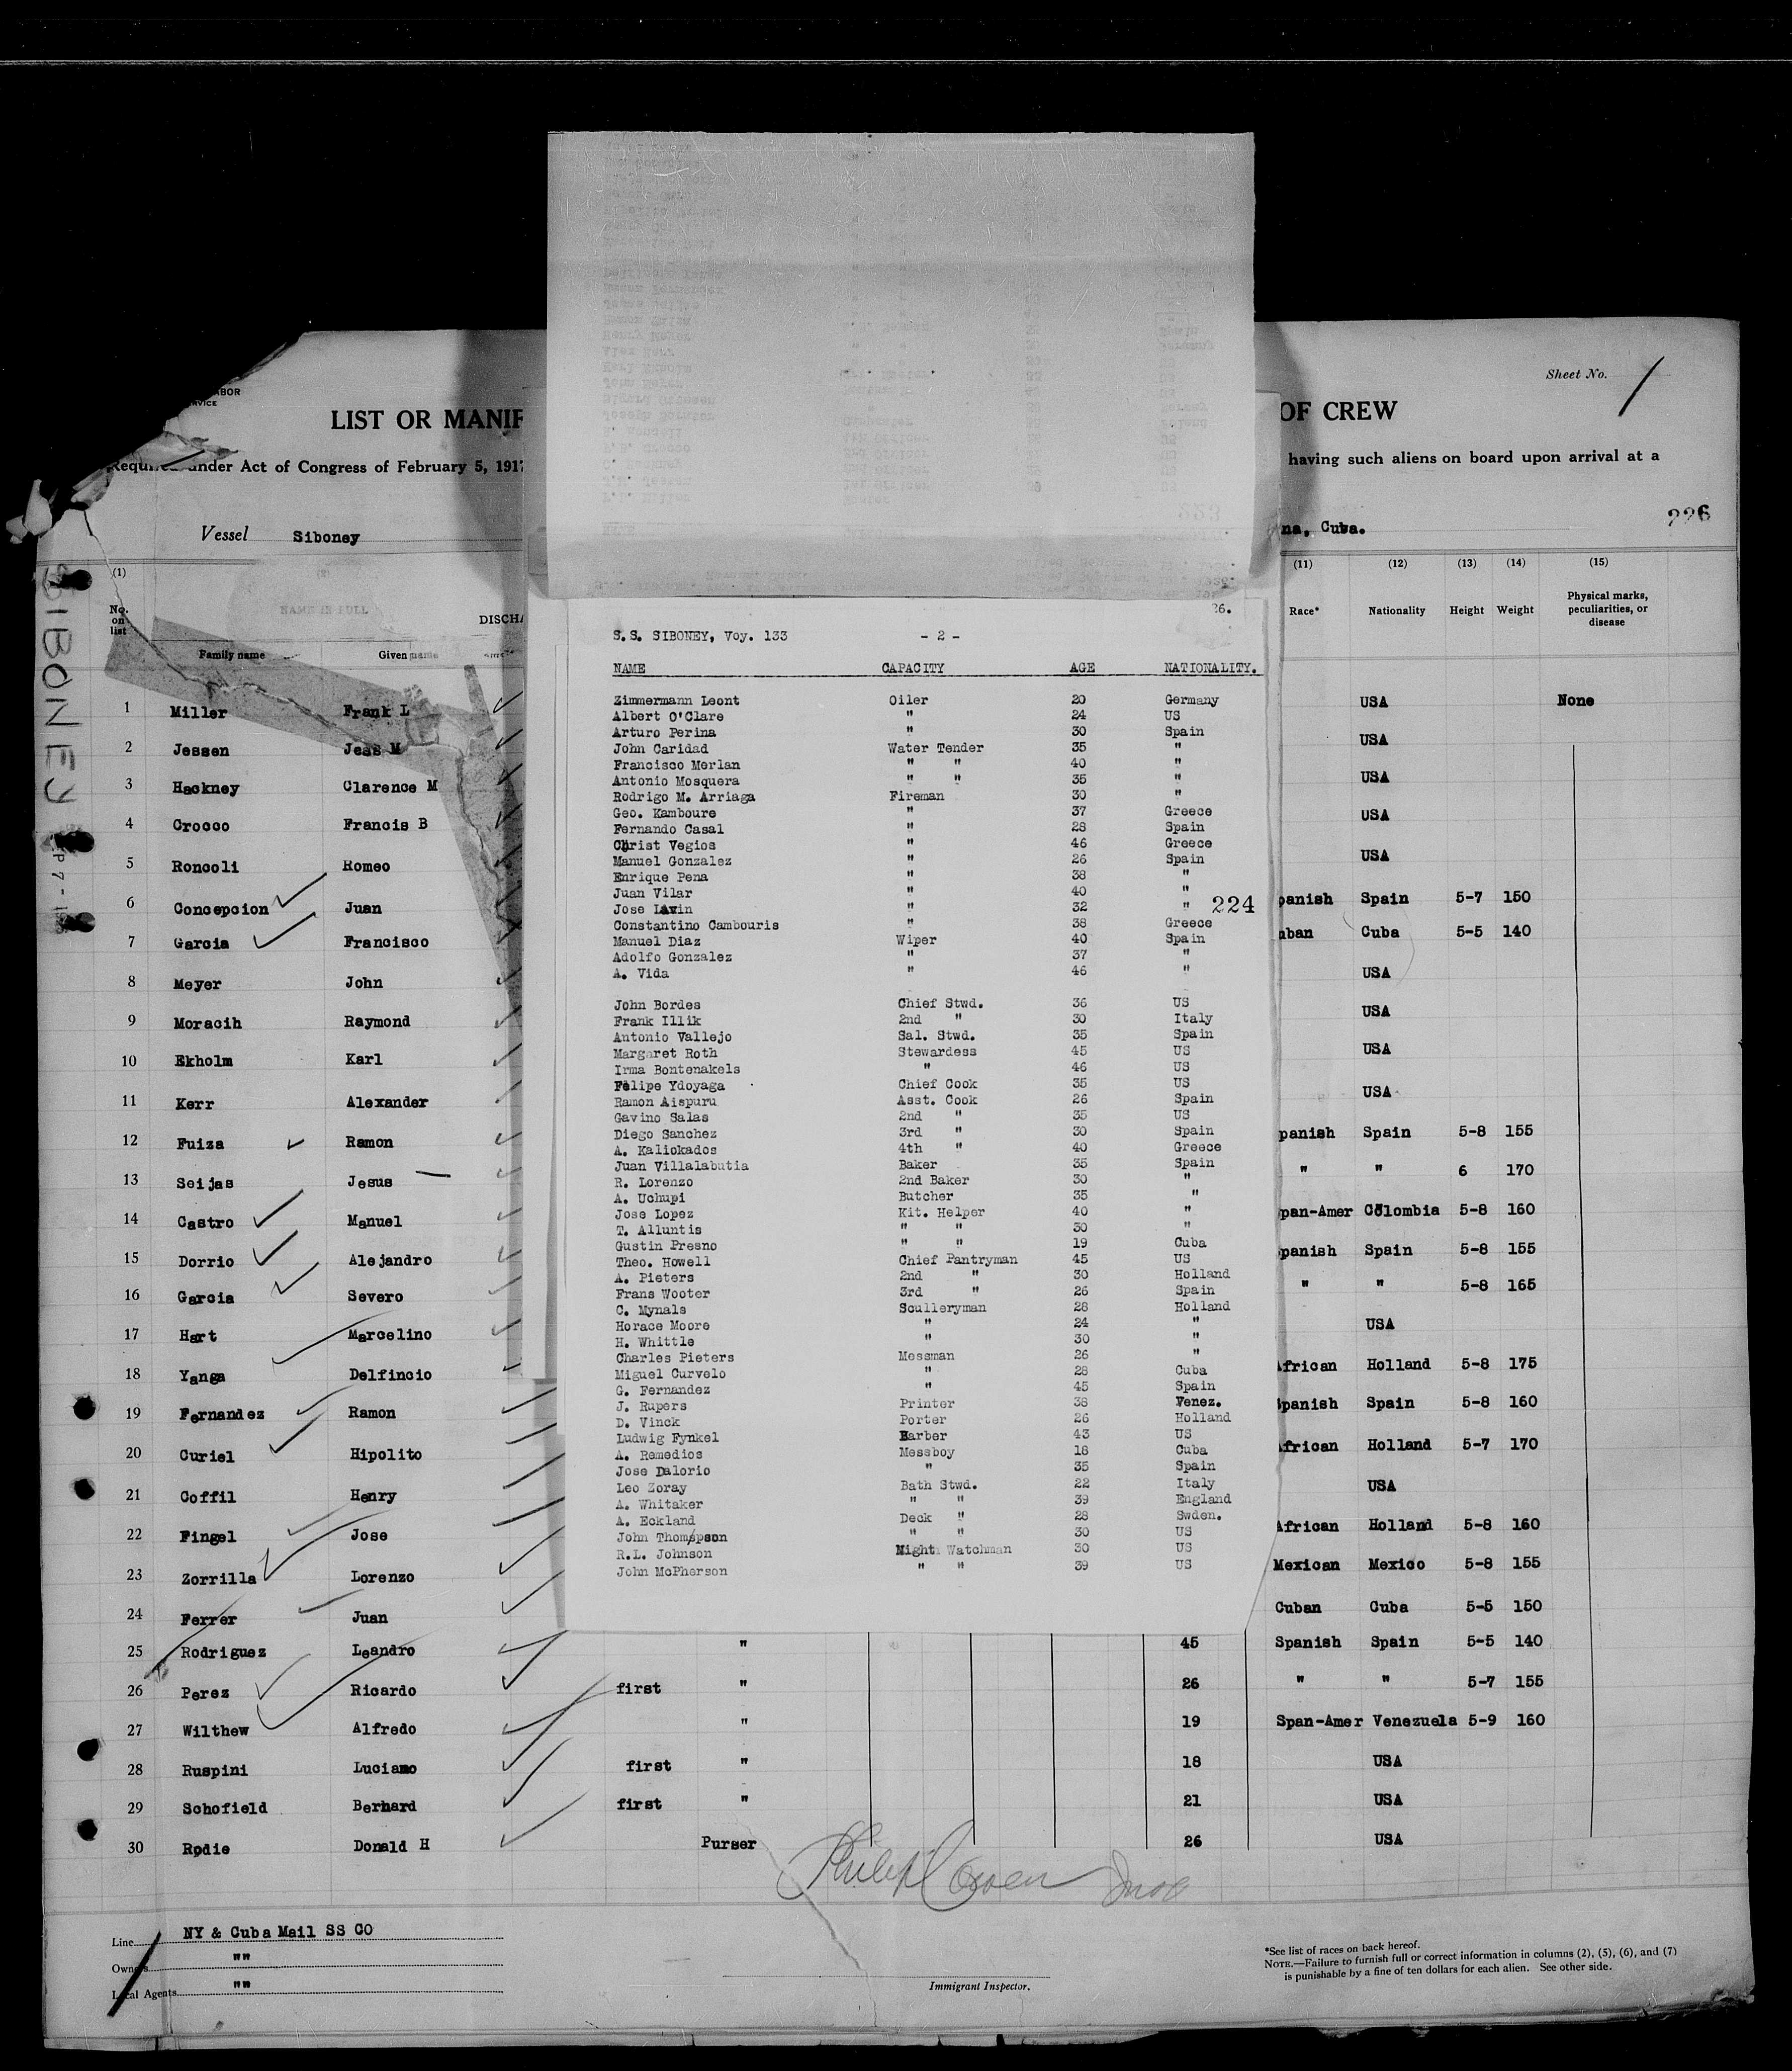 ABOR
RVICE
LIST OR MANIF
OF CREW
Sheet No. 1
under Act of Congress of February 5, 1917
having such aliens on board upon arrival at a
Vessel Siboney
na, Cuba.
226
SIBONEY
(1) (2)
No. on list
NAME IN FULL
Family name Given name
DISCHA
(11) (12) (13) (14) (15)
Race* Nationality Height Weight Physical marks, peculiarities, or disease
223
26.
S.S. SIBONEY, Voy. 133 - 2 -
NAME CAPACITY AGE NATIONALITY.
Zimmermann Leont Oiler 20 Germany
Albert O'Clare " 24 US
Arturo Perina " 30 Spain
John Caridad Water Tender 35 "
Francisco Merlan " " 40 "
Antonio Mosquera " " 35 "
Rodrigo M. Arriaga Fireman 30 "
Geo. Kamboure " 37 Greece
Fernando Casal " 28 Spain
Christ Vegios " 46 Greece
Manuel Gonzalez " 26 Spain
Enrique Pena " 38 "
Juan Vilar " 40 "
Jose " 32 " 224
Constantino Cambouris " 38 Greece
Manuel Diaz Wiper 40 Spain
Adolfo Gonzalez " 37 "
A. Vida " 46 "
John Bordes Chief Stwd. 36 US
Frank Illik 2nd " 30 Italy
Antonio Vallejo Sal. Stwd. 35 Spain
Margaret Roth Stewardess 45 US
Irma Bontenakels " 46 US
Felipe Ydoyaga Chief Cook 35 US
Ramon Aispuru Asst. Cook 26 Spain
Gavino Salas 2nd " 35 US
Diego Sanchez 3rd " 30 Spain
A. Kaliokados 4th " 40 Greece
Juan Villalabutia Baker 35 Spain
R. Lorenzo 2nd Baker 30 "
A. Uchupi Butcher 35 "
Jose Lopez Kit. Helper 40 "
T. Alluntis " " 30 "
Gustin Presno " " 19 Cuba
Theo. Howell Chief Pantryman 45 US
A. Pieters 2nd " 30 Holland
Frans Wooter 3rd " 26 Spain
C. Mynals Sculleryman 28 Holland
Horace Moore " 24 "
H. Whittle " 30 "
Charles Pieters Messman 26 "
Miguel Curvelo " 28 Cuba
G. Fernandez " 45 Spain
J. Rupers Printer 38 Venez.
D. Vinck Porter 26 Holland
Ludwig Fynkel Barber 43 US
A. Remedios Messboy 18 Cuba
Jose Dalorio " 35 Spain
Leo Zoray Bath Stwd. 22 Italy
A. Whitaker " " 39 England
A. Eckland Deck " 28 Swden.
John Thompson " " 30 US
R.L. Johnson Night Watchman 30 US
John McPherson " " 39 US
1 Miller Frank L USA None
2 Jessen Jess M USA
3 Hackney Clarence M USA
4 Crocco Francis B USA
5 Roncoli Romeo USA
6 Concepcion Juan panish Spain 5-7 150
7 Garcia Francisco uban Cuba 5-5 140
8 Meyer John USA
9 Moracih Raymond USA
10 Ekholm Karl USA
11 Kerr Alexander USA
12 Fuiza Ramon panish Spain 5-8 155
13 Seijas Jesus " " 6 170
14 Castro Manuel pan-Amer Colombia 5-8 160
15 Dorrio Alejandro panish Spain 5-8 155
16 Garcia Severo " " 5-8 165
17 Hart Marcelino USA
18 Yanga Delfincio African Holland 5-8 175
19 Fernandez Ramon Spanish Spain 5-8 160
20 Curiel Hipolito African Holland 5-7 170
21 Coffil Henry USA
22 Fingel Jose African Holland 5-8 160
23 Zorrilla Lorenzo Mexican Mexico 5-8 155
24 Ferrer Juan Cuban Cuba 5-5 150
25 Rodriguez Leandro " 45 Spanish Spain 5-5 140
26 Perez Ricardo first " 26 " " 5-7 155
27 Wilthew Alfredo " 19 Span-Amer Venezuela 5-9 160
28 Ruspini Luciano first " 18 USA
29 Schofield Bernard first " 21 USA
30 Rodie Donald H Purser 26 USA
Line NY & Cuba Mail SS CO
Owners ""
Local Agents ""
Immigrant Inspector.
*See list of races on back hereof.
NOTE.—Failure to furnish full or correct information in columns (2), (5), (6), and (7)
is punishable by a fine of ten dollars for each alien. See other side.